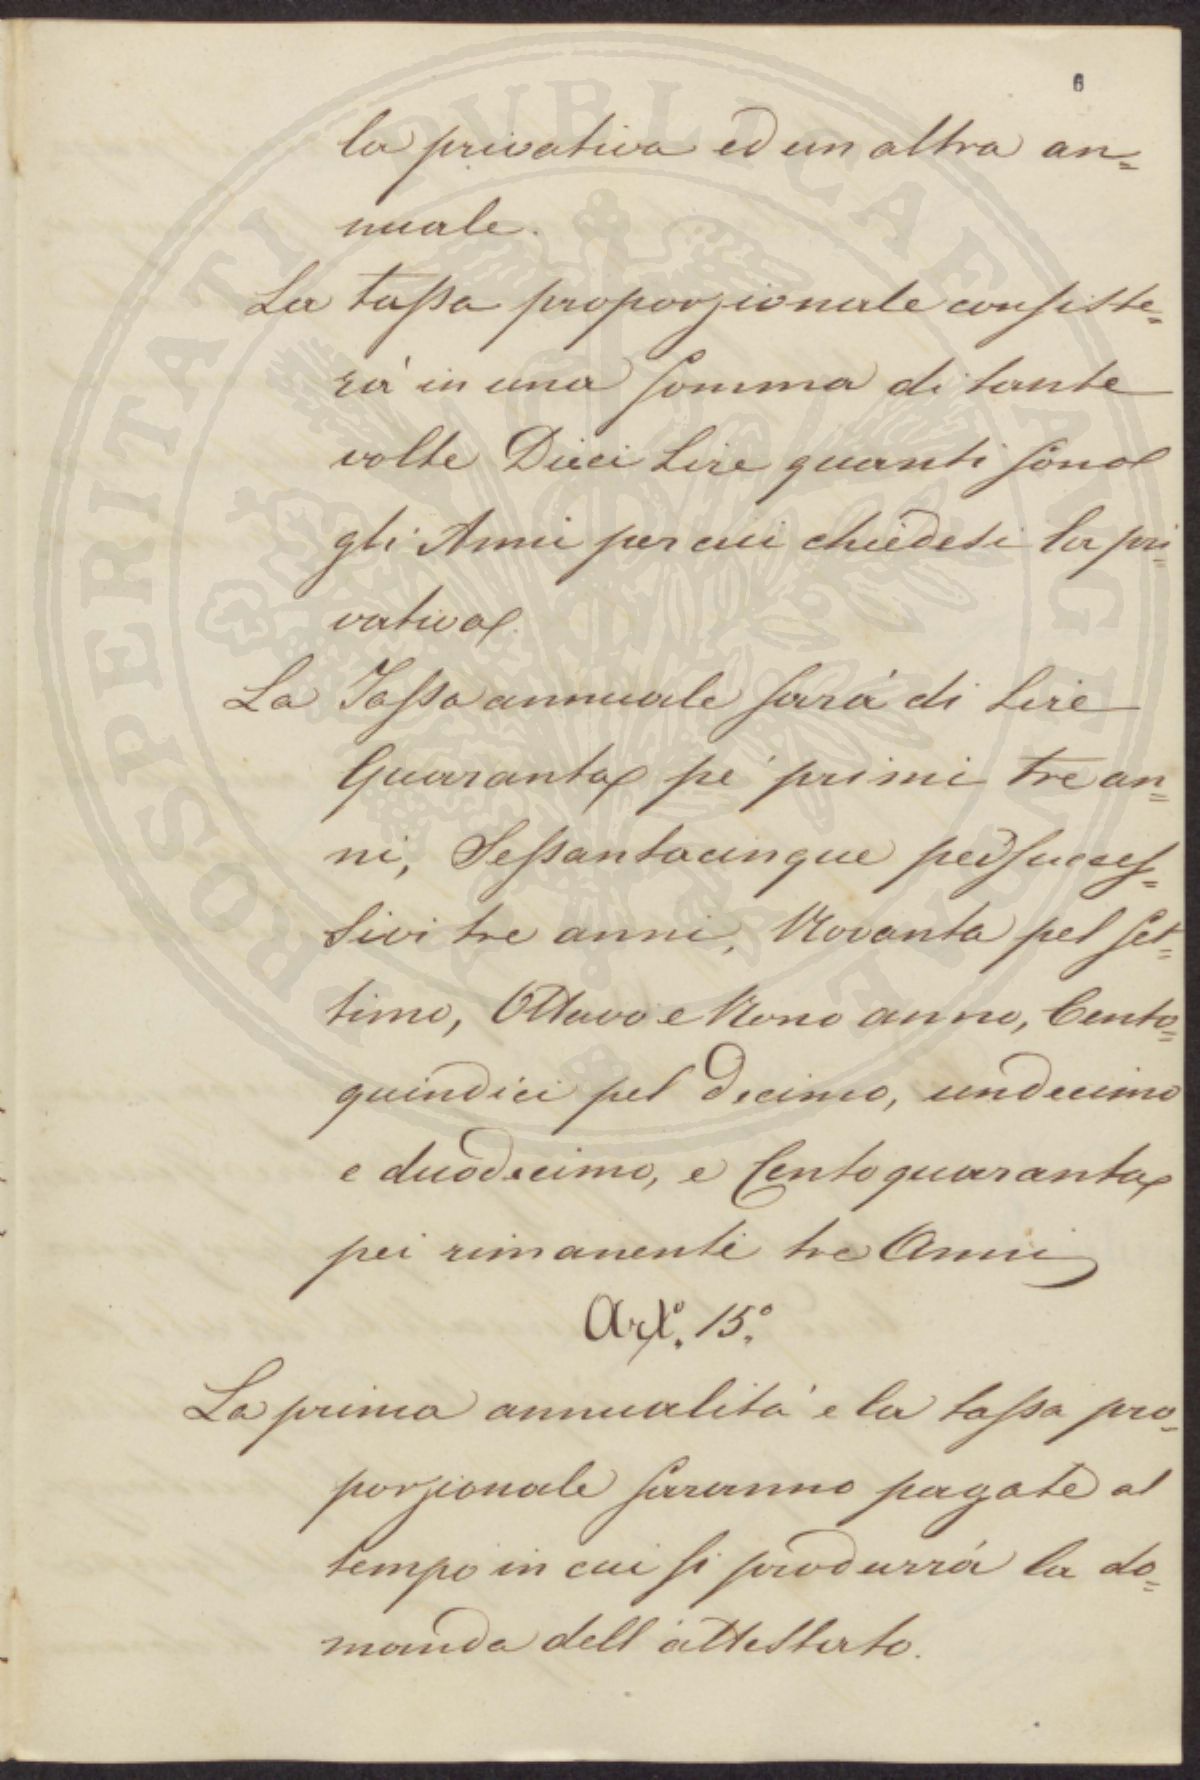 6
la privativa ed un altra an=
nuale.
La tassa proporzionale consiste=
rá in una somma di tante
volte Dieci Lire quanti sono
gli Anni per cui chiedesi la pri=
vativa
La Tassa annuale sará di Lire
Quaranta pe' primi tre an=
ni, Sessantacinque pei succes=
sivi tre anni, Novanta pel set=
timo, Ottavo e Nono anno, Cento=
quindici pel Decimo, undecimo
e duodecimo, e Centoquaranta
pei rimanenti tre Anni
Art.º 15.º
La prima annualitá e la tassa pro=
porzionale saranno pagate al
tempo in cui si produrrá la do=
manda dell'attestato.
PROSPERITATI PUBLICAE AUGENDAE